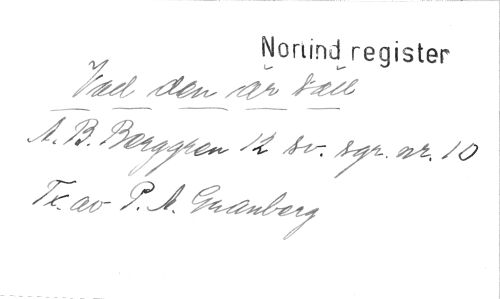 Norlind register
Vad den är säll
A. B. Berggren 12 sv. sgr. nr. 10
Tx. av P. A. Granberg